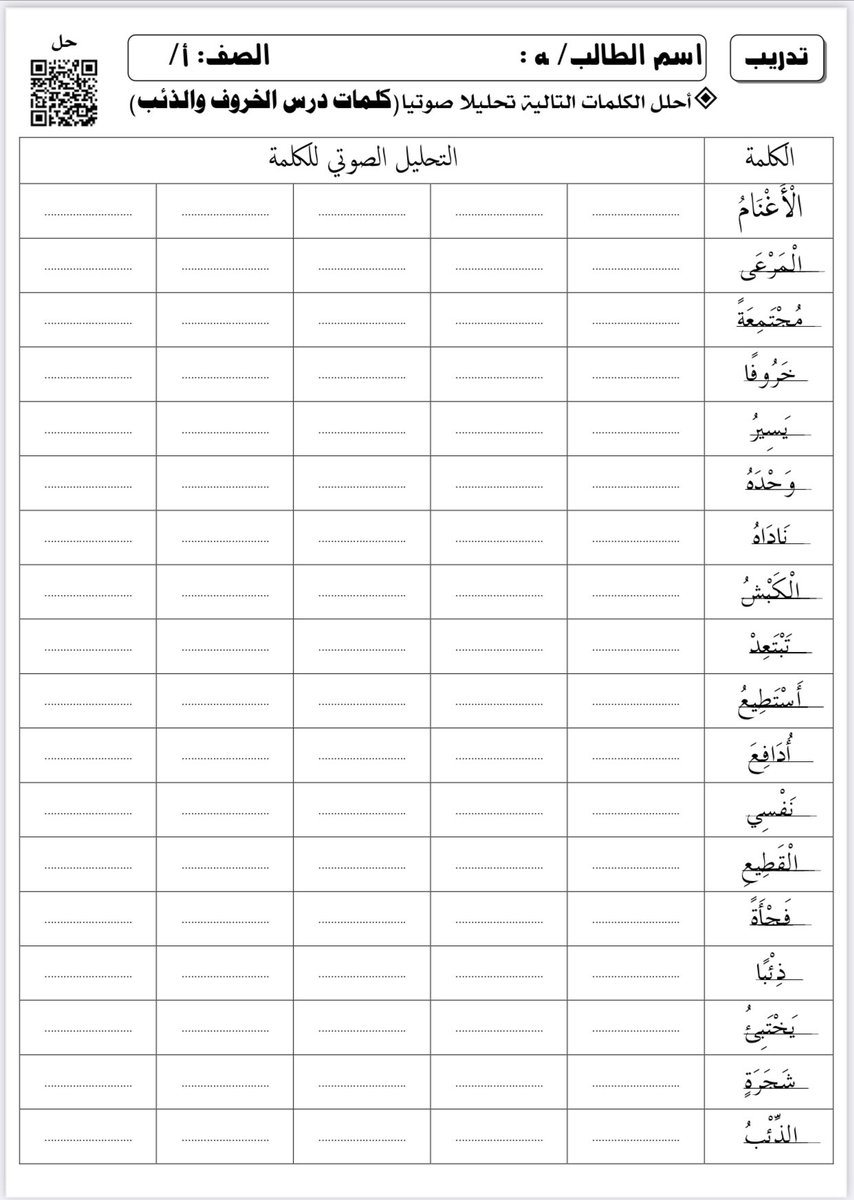 حل
تدريب
اسم الطالب/ ه : الصف: أ/
أحلل الكلمات التالية تحليلا صوتيا(كلمات درس الخروف والذئب)
الكلمة التحليل الصوتي للكلمة
الْأَغْنَامُ
الْمَرْعَى
مُجْتَمِعَةً
خَرُوفًا
يَسِيرُ
وَحْدَهُ
نَادَاهُ
الْكَبْشُ
تَبْتَعِدْ
أَسْتَطِيعُ
أُدَافِعَ
نَفْسِي
الْقَطِيعِ
فَجْأَةً
ذِئْبًا
يَخْتَبِئُ
شَجَرَةٍ
الذِّئْبُ